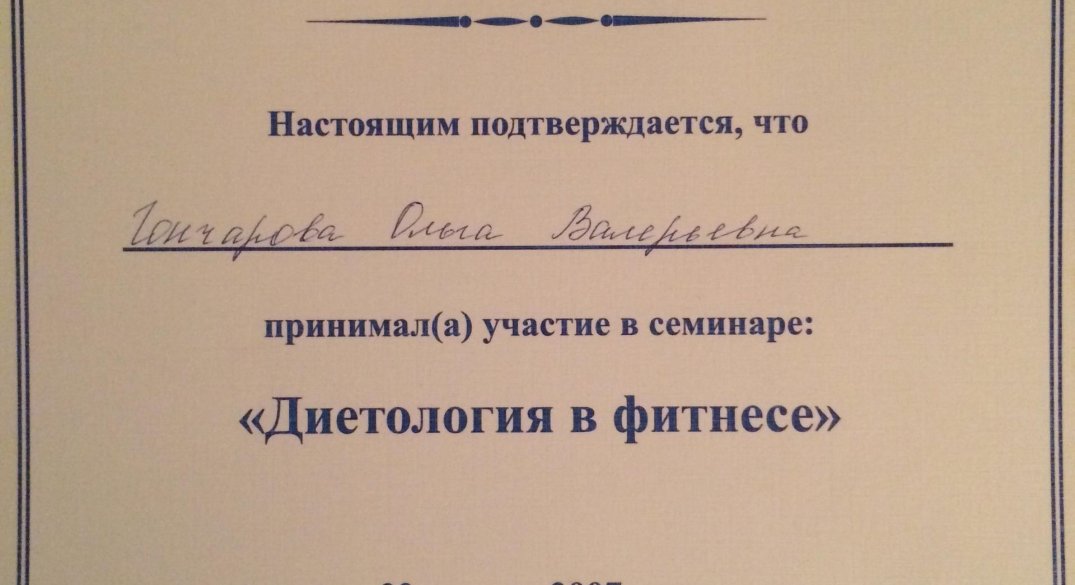 Настоящим подтверждается, что
Гончарова Ольга Валерьевна
принимал(а) участие в семинаре:
«Диетология в фитнесе»